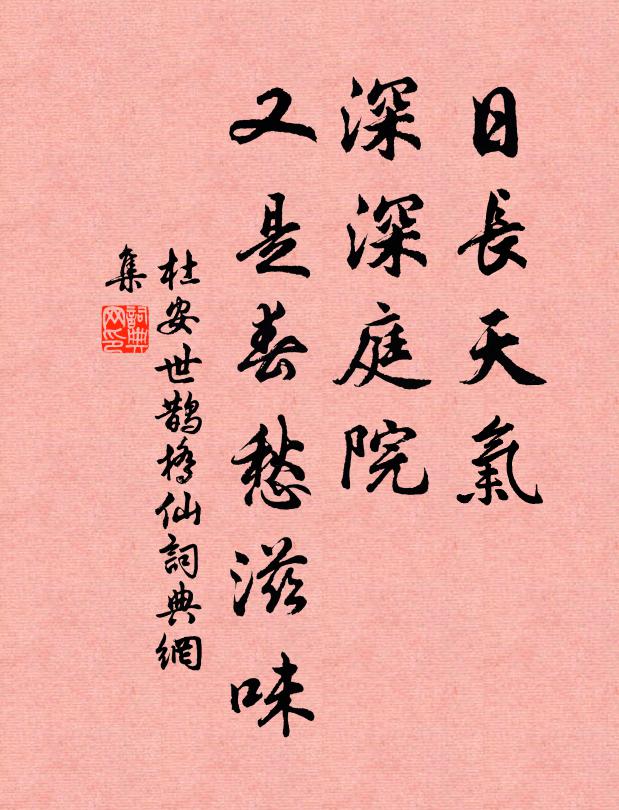 日長天氣
深深庭院
又是春愁滋味
杜安世鵲橋仙詞典網
集
詞典
网印